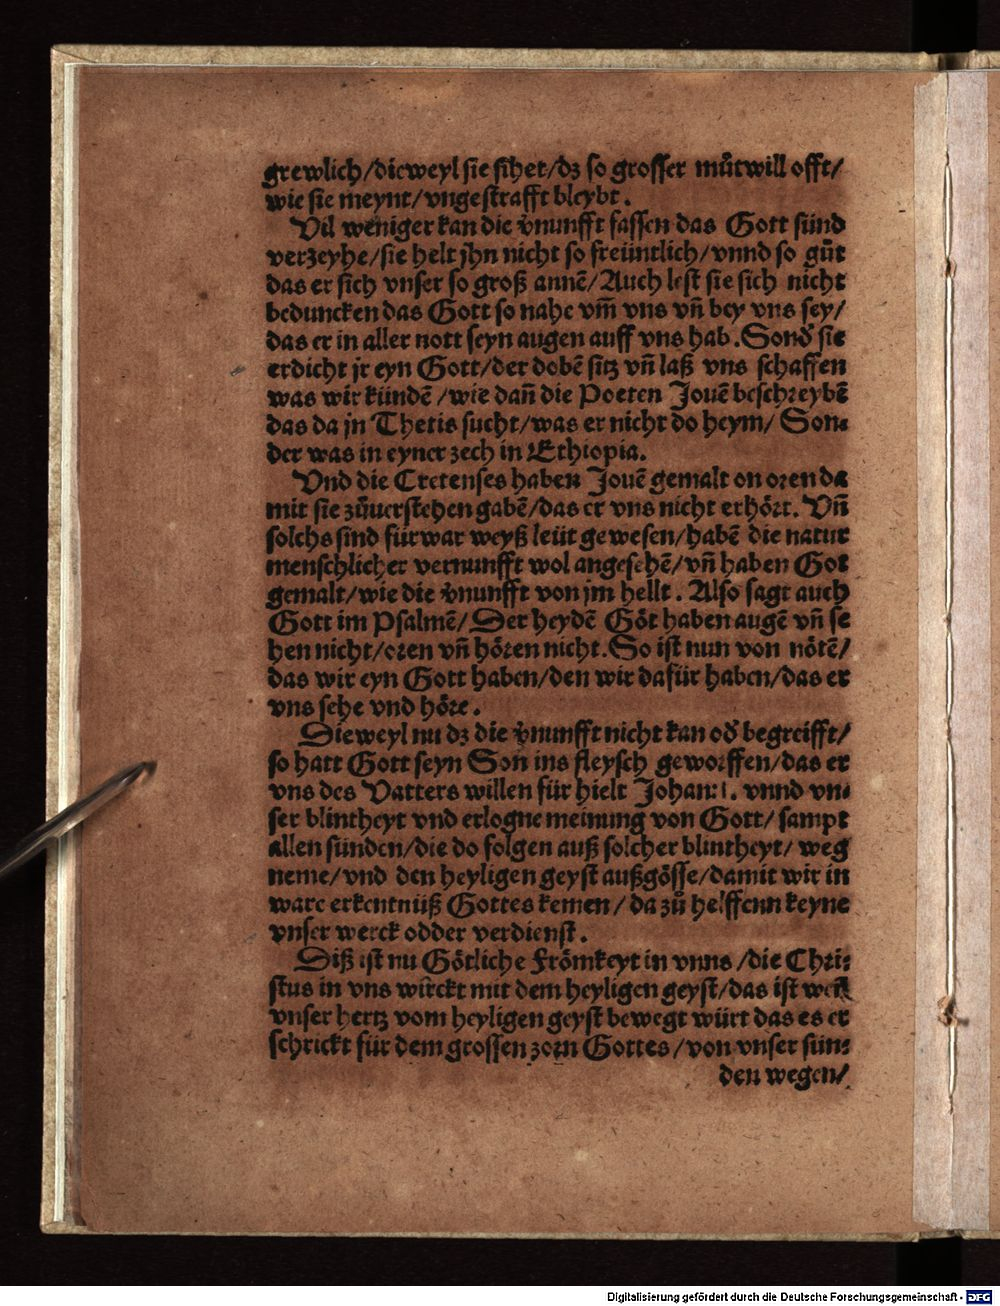 grewlich/dieweyl sie sihet/dz so grosser můtwill offt/
wie sie meynt/vngestrafft bleybt.
Vil weniger kan die v̉nunfft fassen das Gott sünd
verzeyhe/sie helt jhn nicht so freüntlich/vnnd so gůt
das er sich vnser so groß annē/Auch lest sie sich nicht
beduncken das Gott so nahe vm̄ vns vn̄ bey vns sey/
das er in aller nott seyn augen auff vns hab. Sond̉ sie
erdicht jr eyn Gott/der dobē sitz vn̄ laß vns schaffen
was wir kündē/wie dan̄ die Poeten Jouē beschreybē
das da jn Thetis sucht/was er nicht do heym/ Son⸗
der was in eyner zech in Ethiopia.
Vnd die Cretenses haben Jouē gemalt on oren da
mit sie zůuerstehen gabē/das er vns nicht erhört. Vn̄
solchs sind fürwar weyß leüt gewesen/habē die natur
menschlicher vernunfft wol angesehē/vn̄ haben Got
gemalt/wie die v̉nunfft von jm hellt. Also sagt auch
Gott im Psalmē/Der heydē Göt haben augē vn̄ se
hen nicht/oren vn̄ hören nicht. So ist nun von nötē/
das wir eyn Gott haben/den wir dafür haben/das er
vns sehe vnd höre.
Dieweyl nu dz die v̉nunfft nicht kan od̉ begreifft/
so hatt Gott seyn Son ins fleysch geworffen/das er
vns des Vatters willen für hielt Johan: 1. vnnd vn⸗
ser blintheyt vnd erlogne meinung von Gott/ sampt
allen sünden/die do folgen auß solcher blintheyt/ weg
neme/vnd den heyligen geyst außgösse/damit wir in
ware erkentnüß Gottes kemen/ da zů helffenn keyne
vnser werck odder verdienst.
Diß ist nu Götliche Frömkeyt in vnns/die Chri⸗
stus in vns wirckt mit dem heyligen geyst/das ist weñ
vnser hertz vom heyligen geyst bewegt würt das es er
schrickt für dem grossen zorn Gottes/von vnser sün⸗
den wegen/
Digitalisierung gefördert durch die Deutsche Forschungsgemeinschaft - DFG